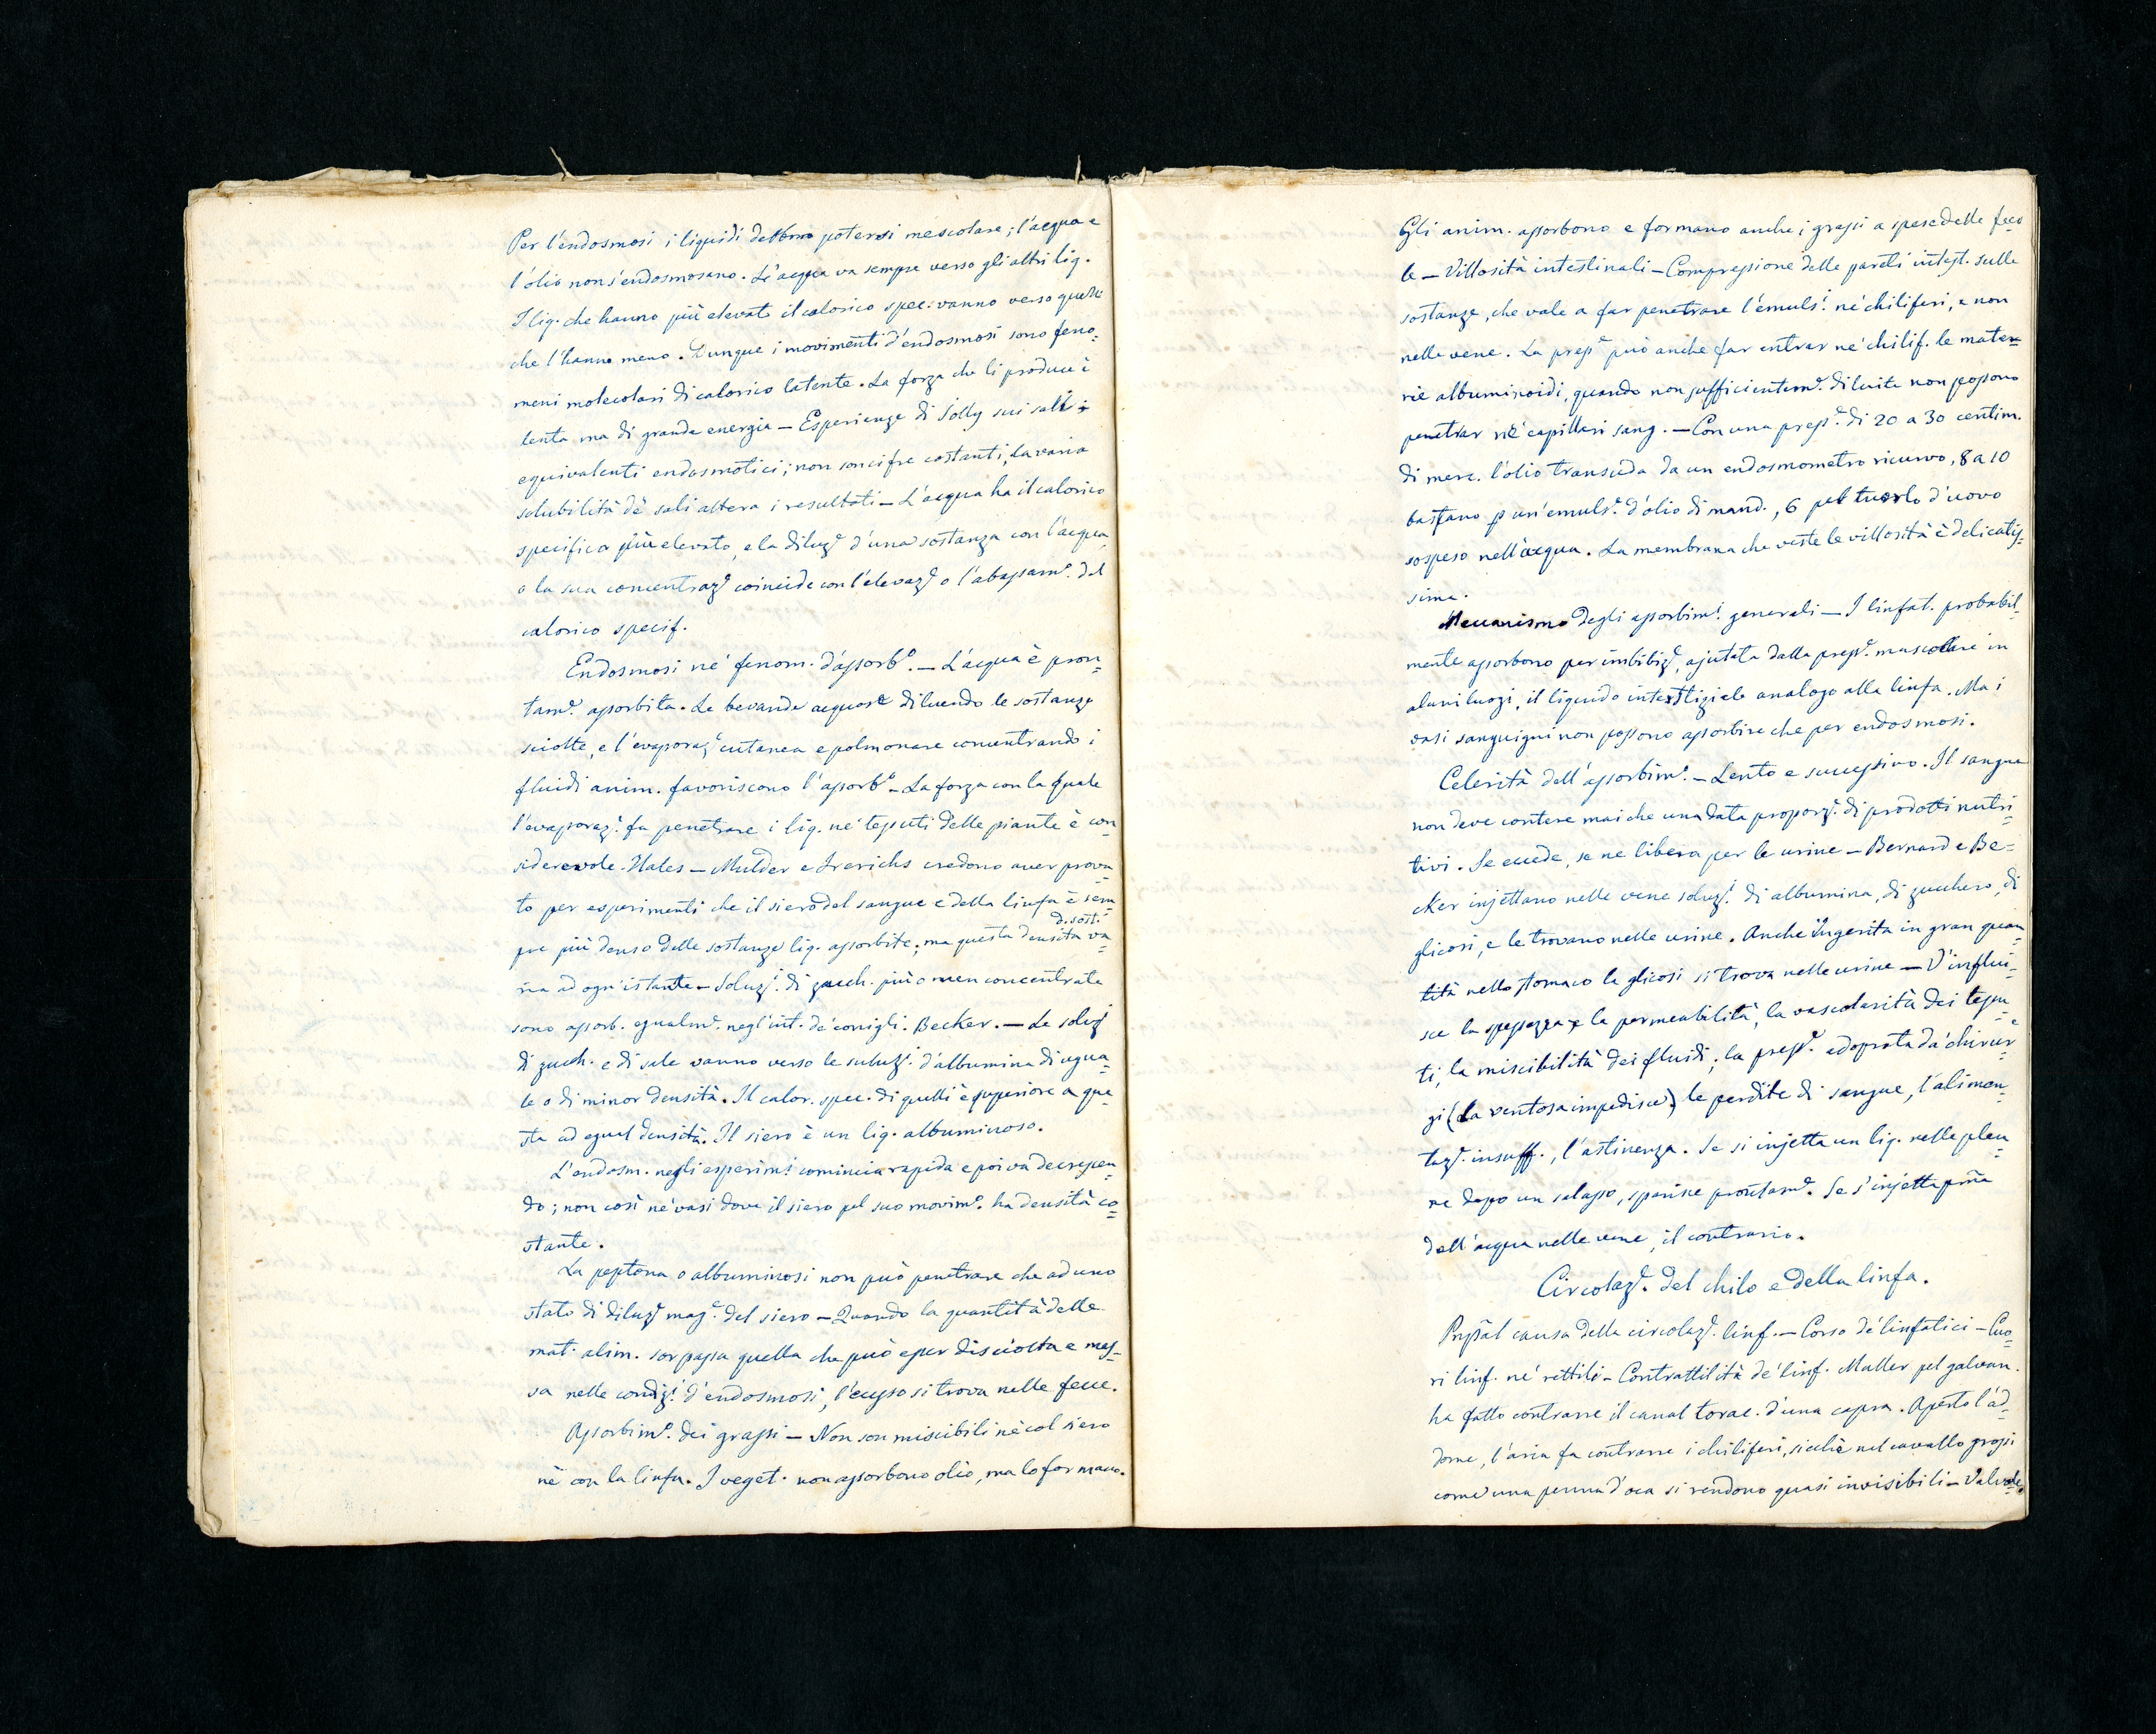 Per l'endosmosi i liquidi debbono potersi mescolare; l'acqua e
l'olio non s'endosmosano. L'acqua va sempre verso gli altri liq.
I liq. che hanno più elevato il calorico spec. vanno verso quelli
che l'hanno meno. Dunque i movimenti d'endosmosi sono feno=
meni molecolari di calorico latente. La forza che li produce è
lenta ma di grande energia — Esperienze di Jolly sui sali:
equivalenti endosmotici; non son cifre costanti, la varia
solubilità de' sali altera i resultati — L'acqua ha il calorico
specifico più elevato, e la diluzᵉ d'una sostanza con l'acqua,
o la sua concentrazᵉ coincide con l'elevazᵉ o l'abassamᵒ. del
calorico specif.
Endosmosi ne' fenom. d'assorbᵒ. — L'acqua è pron=
tamᵉ. assorbita. Le bevande acquose diluendo le sostanze
sciolte, e l'evaporazᵉ cutanea e polmonare concentrando i
fluidi anim. favoriscono l'assorbᵒ — La forza con la quale
l'evaporazᵉ. fa penetrare i liq. ne' tessuti delle piante è con=
siderevole. Hales — Mulder e Frerichs credono aver prova=
to per esperimenti che il siero del sangue e della linfa è sem=
pre più denso delle sostanze liq. assorbite; ma questa densità va=
d. sost.
ria ad ogn'istante — Soluzⁱ. di zucch. più o men concentrate
sono assorb. egualmᵉ. negl'int. de' conigli. Becker. — Le soluzⁱ
di zucch. e di sale vanno verso le soluzⁱ. d'albumina di egua=
le o di minor densità. Il calor. spec. di quelli è superiore a que=
sta ad egual densità. Il siero è un liq. albuminoso.
L'endosm. negli esperimⁱ comincia rapida e poi va decrescen=
do; non così ne' vasi dove il siero pel suo movimᵒ. ha densità co=
stante.
La peptona o albuminosi non può penetrare che ad uno
stato di diluzᵉ magᵉ. del siero — Quando la quantità delle
mat. alim. sorpassa quella che può esser disciolta e mes=
sa nelle condizⁱ d'endosmosi, l'eccesso si trova nelle fecce.
Assorbimᵒ. dei grassi — Non son miscibili nè col siero
nè con la linfa. I veget. non assorbono olio, ma lo formano.
Gli anim. assorbono e formano anche i grassi a spese delle feco=
le — Villosità intestinali — Compressione delle pareti intest. sulle
sostanze, che vale a far penetrare l'emulsⁱ. ne' chiliferi, e non
nelle vene. La pressᵉ può anche far entrar ne' chilif. le mate=
rie albuminoidi, quando non sufficientemᵉ. diluite non possono
penetrar ne' capillari sang. — Con una pressᵉ. di 20 a 30 centim.
di merc. l'olio transuda da un endosmometro ricurvo, 8 a 10
bastano p un'emulsᵉ. d'olio di mand., 6 pel tuorlo d'uovo
sospeso nell'acqua. La membrana che veste le villosità è delicatis=
sima.
Meccanismo degli assorbimⁱ generali — I linfat. probabil=
mente assorbono per imbibizᵉ, ajutata dalla pressᵉ. muscolare in
alcuni luogi, il liquido interstiziale analogo alla linfa. Ma i
vasi sanguigni non possono assorbire che per endosmosi.
Celerità dell'assorbimᵒ. — Lento e successivo. Il sangue
non deve contere mai che una data proporzᵉ. di prodotti nutri=
tivi. Se eccede, se ne libera per le urine — Bernard e Be=
cker injettano nelle vene soluzⁱ. di albumina, di zucchero, di
glicosi, e le trovano nelle urine. Anche ingerita in gran quan=
tità nello stomaco la glicosi si trova nelle urine — V'influi=
sce la spessezza e la permeabilità, la vascolarità dei tessu=
ti, la miscibilità dei fluidi; la pressᵉ. adoprata da' chirur=
gi (la ventosa impedisce), le perdite di sangue, l'alimen=
tazᵉ. insuff., l'astinenza. Se si injetta un liq. nelle pleu=
re dopo un salasso, sparisce prontamᵉ. Se s'injetta pr̃ia
dell'acqua nelle vene, il contrario.
Circolazᵉ. del chilo e della linfa.
Prip̃al causa della circolazᵉ. linf. — Corso de' linfatici — Cuo=
ri linf. ne' rettili — Contrattilità de' linf. Muller pel galvan.
ha fatto contrarre il canal torac. d'una capra. Aperto l'ad=
dome, l'aria fa contrarre i chiliferi, sicchè nel cavallo grossi
come una penna d'oca si rendono quasi invisibili — Valvole,